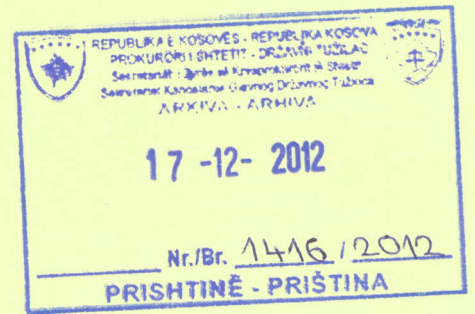 REPUBLIKA E KOSOVËS - REPUBLIKA KOSOVA
PROKURORI I SHTETIT - DRŽAVNI TUŽILAC
Sekretariati i Zyrës së Kryeprokurorit të Shtetit
Sekretariat Kancelarije Glavnog Državnog Tužioca
ARKIVA - ARHIVA
17 -12- 2012
Nr./Br. 1416 / 2012
PRISHTINË - PRIŠTINA